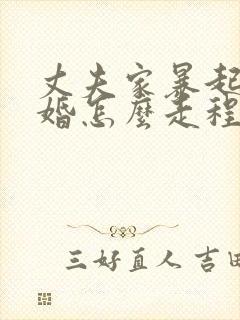 丈夫家暴起
婚怎麼走程
三好直人 吉田